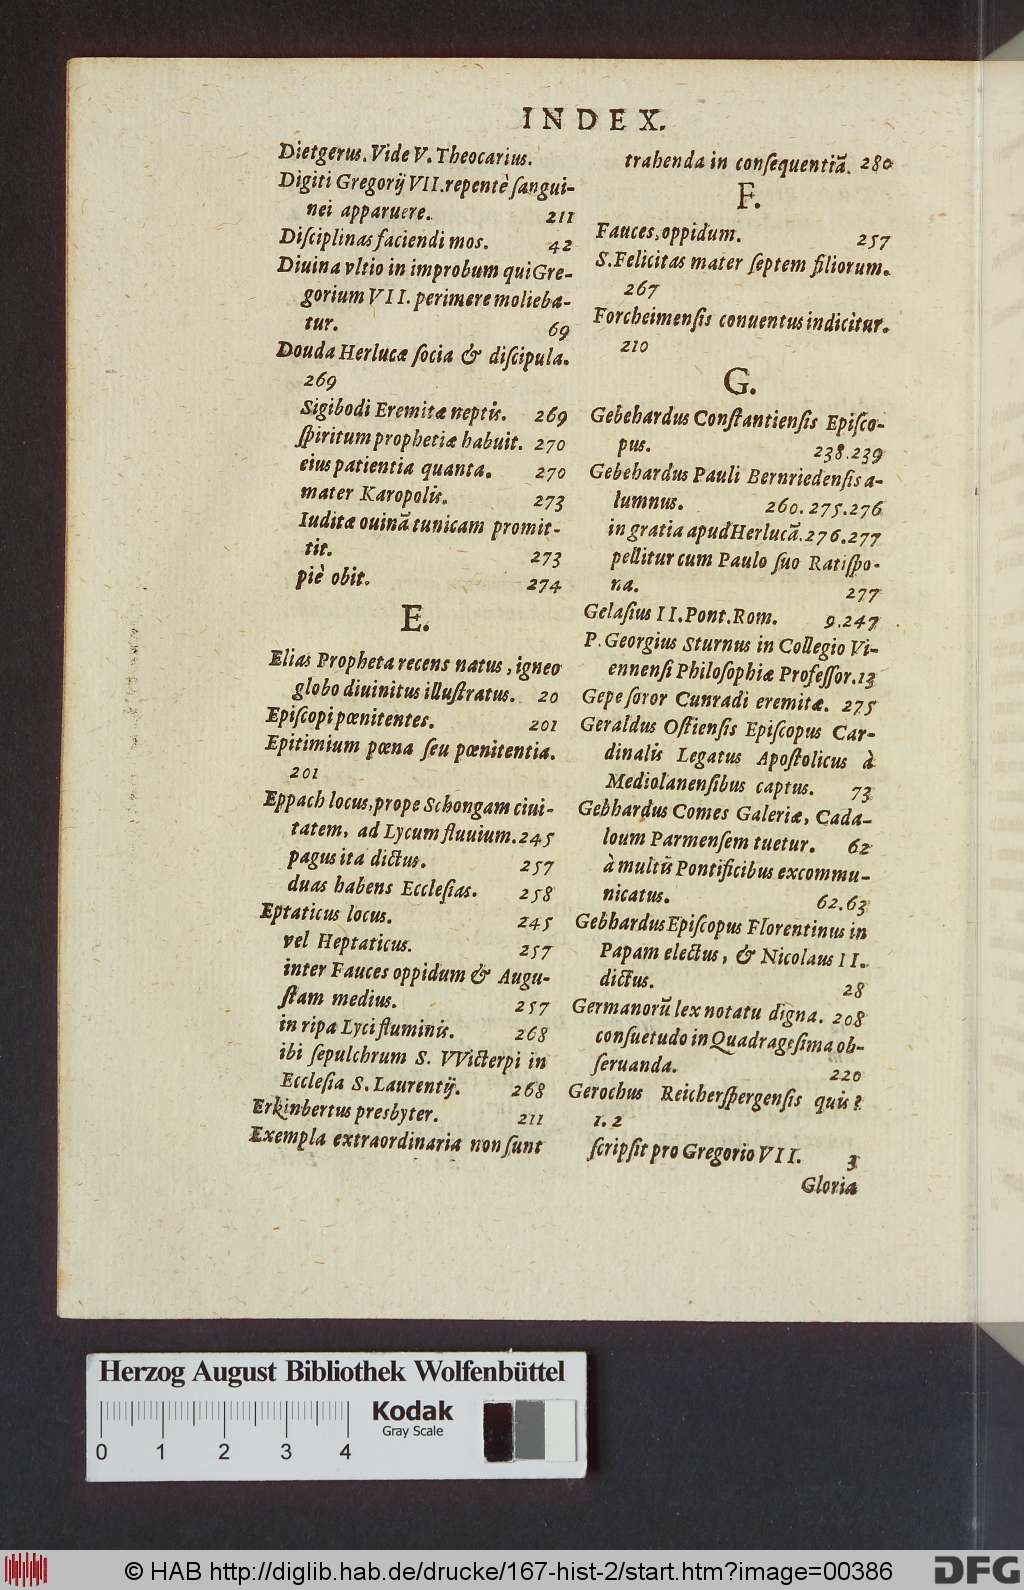 INDEX.
Dietgerus. Vide V. Theocarius.
Digiti Gregorij VII. repentè ſangui-
nei apparuere. 211
Diſciplinas faciendi mos. 42
Diuina vltio in improbum qui Gre-
gorium VII. perimere molieba-
tur. 69
Douda Herlucæ ſocia & diſcipula.
269
Sigibodi Eremitæ neptis. 269
ſpiritum prophetiæ habuit. 270
eius patientia quanta. 270
mater Karopolis. 273
Iuditæ ouinā tunicam promit-
tit. 273
piè obit. 274
E.
Elias Propheta recens natus, igneo
globo diuinitus illuſtratus. 20
Epiſcopi pœnitentes. 201
Epitimium pœna ſeu pœnitentia.
201
Eppach locus, prope Schongam ciui-
tatem, ad Lycum fluuium. 245
pagus ita dictus. 257
duas habens Eccleſias. 258
Eptaticus locus. 245
vel Heptaticus. 257
inter Fauces oppidum & Augu-
ſtam medius. 257
in ripa Lyci fluminis. 268
ibi ſepulchrum S. VVicterpi in
Eccleſia S. Laurentij. 268
Erkinbertus presbyter. 211
Exempla extraordinaria non ſunt
trahenda in conſequentiā. 280
F.
Fauces, oppidum. 257
S. Felicitas mater ſeptem filiorum.
267
Forcheimenſis conuentus indicitur.
210
G.
Gebehardus Conſtantienſis Epiſco-
pus. 238. 239
Gebehardus Pauli Bernriedenſis a-
lumnus. 260. 275. 276
in gratia apud Herlucā. 276. 277
pellitur cum Paulo ſuo Ratiſpo-
na. 277
Gelaſius II. Pont. Rom. 9. 247
P. Georgius Sturnus in Collegio Vi-
ennenſi Philoſophiæ Profeſſor. 13
Gepe ſoror Cunradi eremitæ. 275
Geraldus Oſtienſis Epiſcopus Car-
dinalis Legatus Apoſtolicus à
Mediolanenſibus captus. 73
Gebhardus Comes Galeriæ, Cada-
loum Parmenſem tuetur. 62
à multis Pontificibus excommu-
nicatus. 62. 63
Gebhardus Epiſcopus Florentinus in
Papam electus, & Nicolaus II.
dictus. 28
Germanorū lex notatu digna. 208
conſuetudo in Quadrageſima ob-
ſeruanda. 220
Gerochus Reicherſpergenſis quis?
1. 2
ſcripſit pro Gregorio VII. 3
Gloria
Herzog August Bibliothek Wolfenbüttel
Kodak
Gray Scale
0 1 2 3 4
© HAB http://diglib.hab.de/drucke/167-hist-2/start.htm?image=00386
DFG